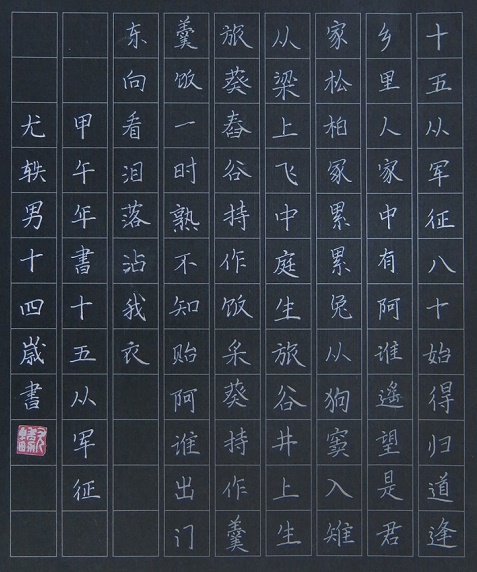 十五从军征八十始得归道逢
乡里人家中有阿谁遥望是君
家松柏冢累累兔从狗窦入雉
从梁上飞中庭生旅谷井上生
旅葵舂谷持作饭采葵持作羹
羹饭一时熟不知贻阿谁出门
东向看泪落沾我衣
甲午年書十五从军征
尤轶男十四歲書